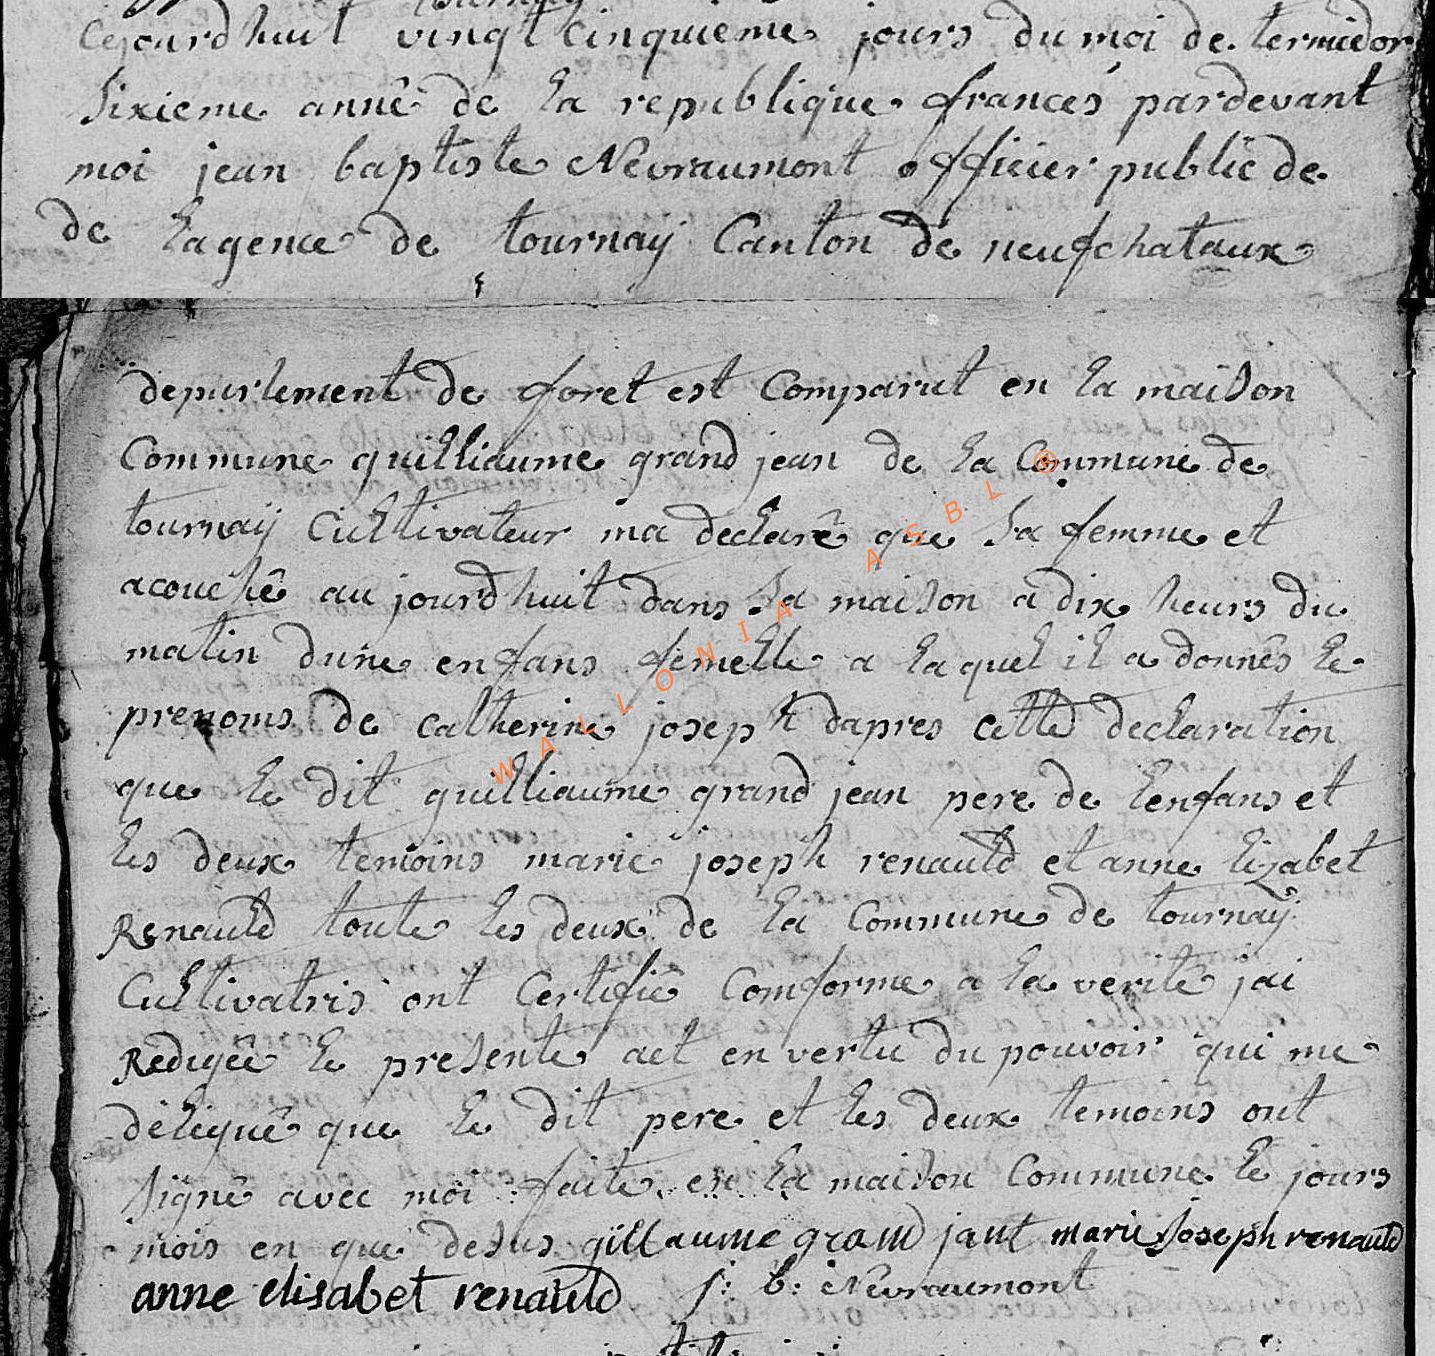 cejourdhuit vingt cinquieme jours du moi de termidor
sixieme annê de la republique francés pardevant
moi jean baptiste Nevraumont officier public de
de lagence de tournay Canton de neufchataux
departement de foret est Comparut en la maison
Commune guilliaume grand jean de la Commune de
tournaÿ Cultivateur ma declarê que sa femme et
acouchê aujourdhuit dans sa maison a dix heurs du
matin dune enfans femelle a laquel il a donnês le
prenoms de catherine joseph dapres cette declaration
que le dit guilliaume grand jean pere de lenfans et
les deux temoins marie joseph renauld et anne lizabet
Renauld toute les deux de la Commune de tournaÿ
Cultivatris ont Certifiê Comforme a la veritê jai
Redigêe le presente act en vertu du pouvoir qui me
déliguê que le dit pere et les deux temoins ont
signê avec moi faite en la maison Commune le jours
mois en que desus gillaume grand jant marie Joseph renauld
anne elisabet renauld j: b: Nevraumont
WALLONIA ASBL ®